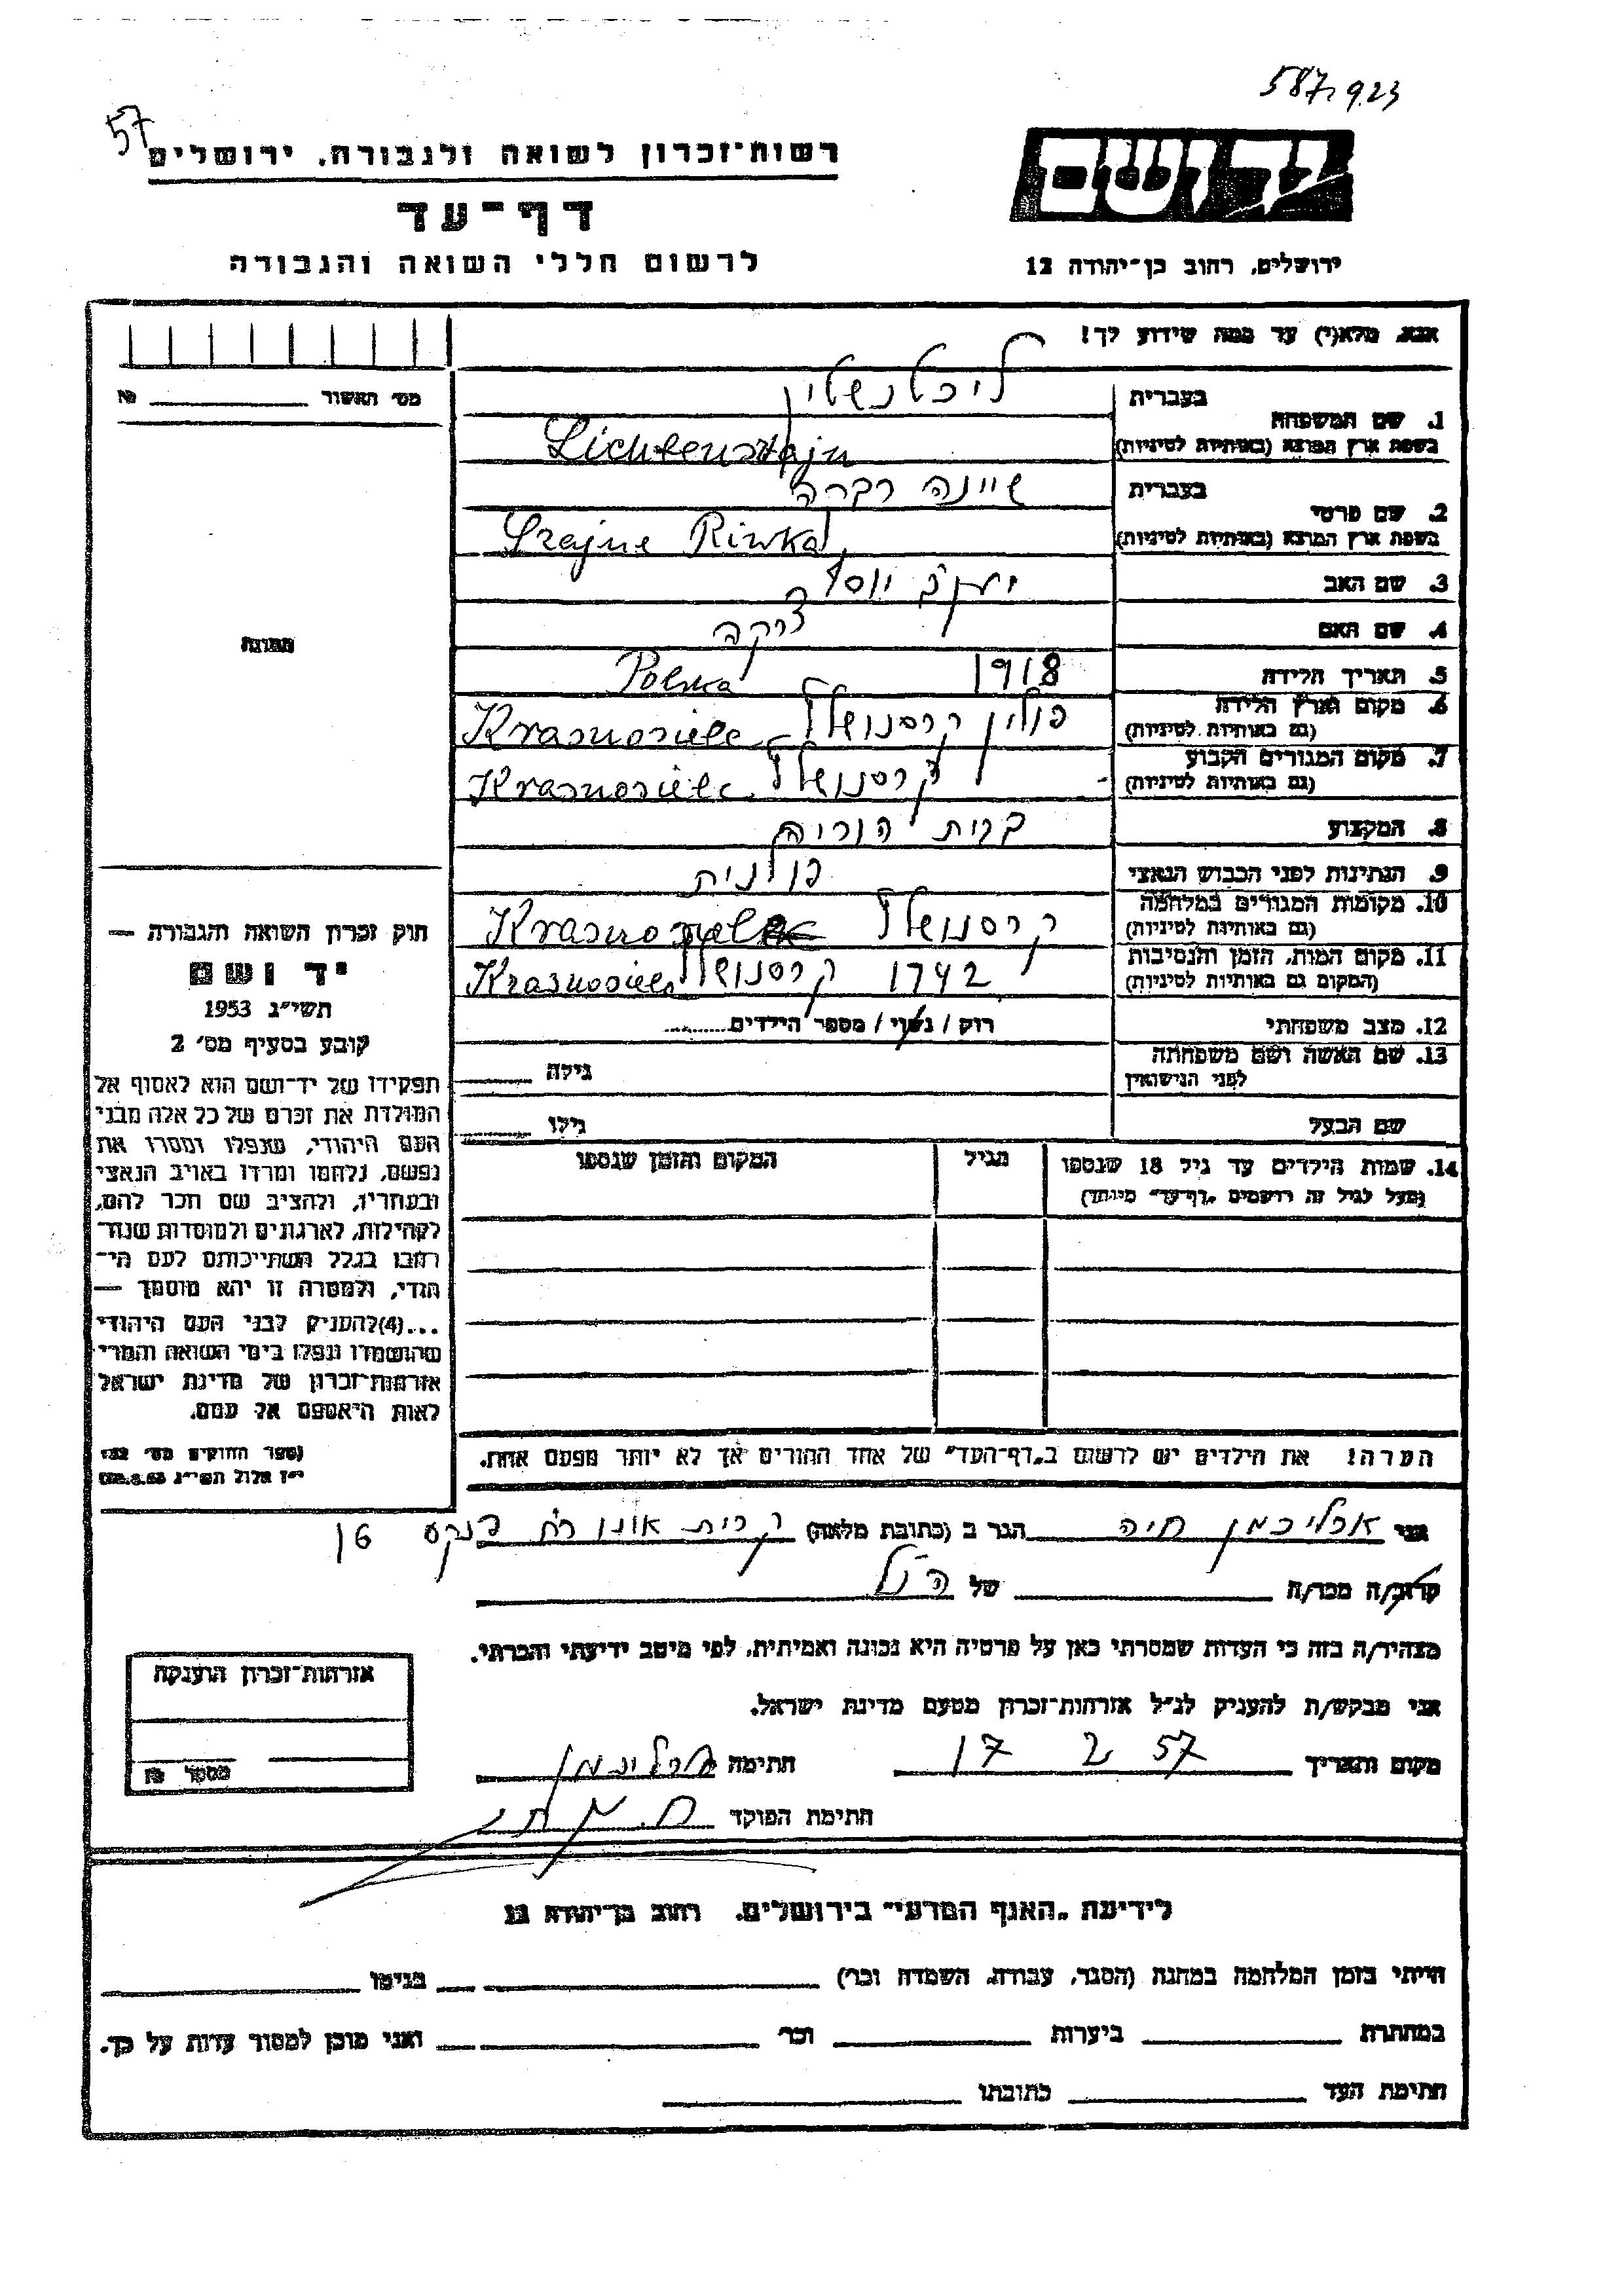 587,923
57
רשות־זכרון לשואה ולגבורה, ירושלים
יד ושם
דף־עד
לרשום חללי השואה והגבורה
ירושלים, רחוב בן־יהודה 12
אנא, מלא(י) עד כמה שידוע לך!
מס׳ האשור №
תמונה
1. שם המשפחה
בעברית ליכטנשטין
בשפת ארץ המוצא (באותיות לטיניות) Lichtensztajn
2. שם פרטי
בעברית שיינה רבקה
בשפת ארץ המוצא (באותיות לטיניות) Szajne Riwka
3. שם האב יעקב יוסף
4. שם האם
5. תאריך הלידה 1918 Polska
6. מקום וארץ הלידה פולין קרסנושלץ Krasnosielc
(גם באותיות לטיניות)
7. מקום המגורים הקבוע קרסנושלץ Krasnosielc
(גם באותיות לטיניות)
8. המקצוע בבית הוריה
9. הנתינות לפני הכבוש הנאצי פולנית
10. מקומות המגורים במלחמה קרסנושלץ Krasnosielc
(גם באותיות לטיניות)
11. מקום המות, הזמן והנסיבות 1942 קרסנושלץ Krasnosielc
(המקום גם באותיות לטיניות)
12. מצב משפחתי רוק / נשוי / מספר הילדים
13. שם האשה ושם משפחתה
לפני הנישואין גילה
שם הבעל גילו
14. שמות הילדים עד גיל 18 שנספו הגיל המקום והזמן שנספו
(מעל לגיל זה רושמים „דף־עד״ מיוחד)
הערה! את הילדים יש לרשום ב„דף־העד״ של אחד ההורים אך לא יותר מפעם אחת.
חוק זכרון השואה והגבורה —
יד ושם
תשי״ג 1953
קובע בסעיף מס׳ 2
תפקידו של יד־ושם הוא לאסוף אל
המולדת את זכרם של כל אלה מבני
העם היהודי, שנפלו ומסרו את
נפשם, נלחמו ומרדו באויב הנאצי
ובעוזריו, ולהציב שם וזכר להם,
לקהילות, לארגונים ולמוסדות שנח־
רבו בגלל השתייכותם לעם הי־
הודי, ולמטרה זו יהא מוסמך —
...(4)להעניק לבני העם היהודי
שהושמדו ונפלו בימי השואה והמרי
אזרחות־זכרון של מדינת ישראל
לאות היאספם אל עמם.
(ספר החוקים מס׳ 132
י״ז אלול תשי״ג 28.8.53)
אני חיה הגר ב (כתובת מלאה) קרית אונו רח׳ פנקס 16
קרוב/ה מכר/ה של הנ״ל
מצהיר/ה בזה כי העדות שמסרתי כאן על פרטיה היא נכונה ואמיתית, לפי מיטב ידיעתי והכרתי.
אני מבקש/ת להעניק לנ״ל אזרחות־זכרון מטעם מדינת ישראל.
מקום ותאריך 17 2 57 חתימה
חתימת הפוקד
אזרחות־זכרון הוענקה
מספר №
לידיעת „האגף המדעי״ בירושלים, רחוב בן־יהודה 12
הייתי בזמן המלחמה במחנה (הסגר, עבודה, השמדה וכו׳) בגיטו
במחתרת ביערות וכו׳ ואני מוכן למסור עדות על כך.
חתימת העד כתובתו